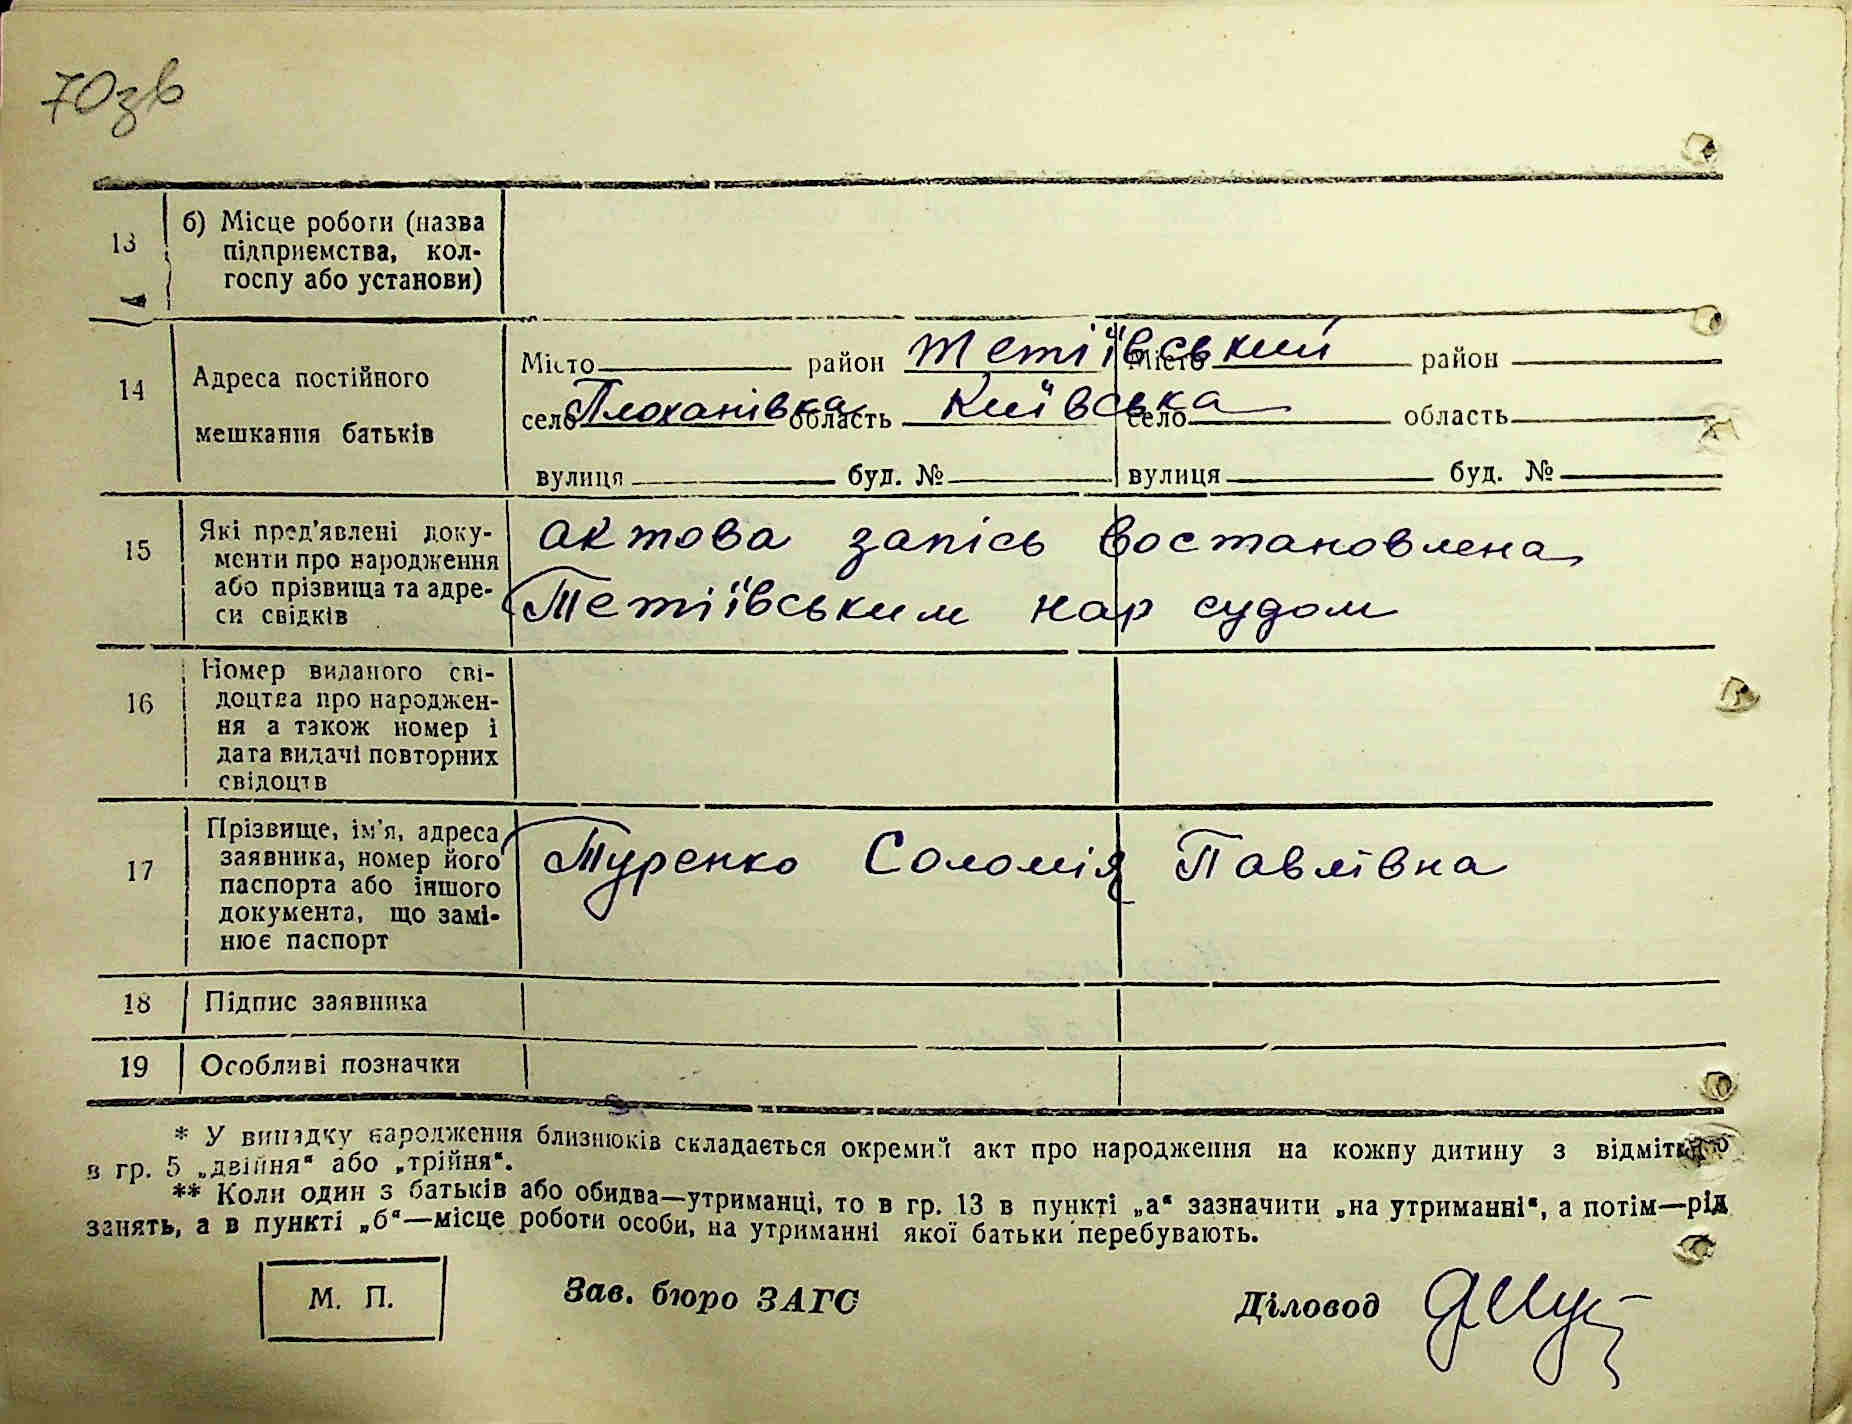 70зв
13 б) Місце роботи (назва
підприємства, кол-
госпу або установи)
14 Адреса постійного
мешкання батьків
Місто район Тетіївський Місто район
село Плоханівка область Київська село область
вулиця буд. № вулиця буд. №
15 Які пред'явлені доку-
менти про народження
або прізвища та адре-
си свідків
актова запісь востановлена
Тетіївським нар судом
16 Номер виданого сві-
доцтва про народжен-
ня а також номер і
дата видачі повторних
свідоцтв
17 Прізвище, ім'я, адреса
заявника, номер його
паспорта або іншого
документа, що замі-
нює паспорт
Туренко Соломія Павлівна
18 Підпис заявника
19 Особливі позначки
* У випадку народження близнюків складається окремий акт про народження на кожну дитину з відміткою
в гр. 5 „двійня" або „трійня".
** Коли один з батьків або обидва—утриманці, то в гр. 13 в пункті „а" зазначити „на утриманні", а потім—рід
занять, а в пункті „б"—місце роботи особи, на утриманні якої батьки перебувають.
М. П. Зав. бюро ЗАГС Діловод